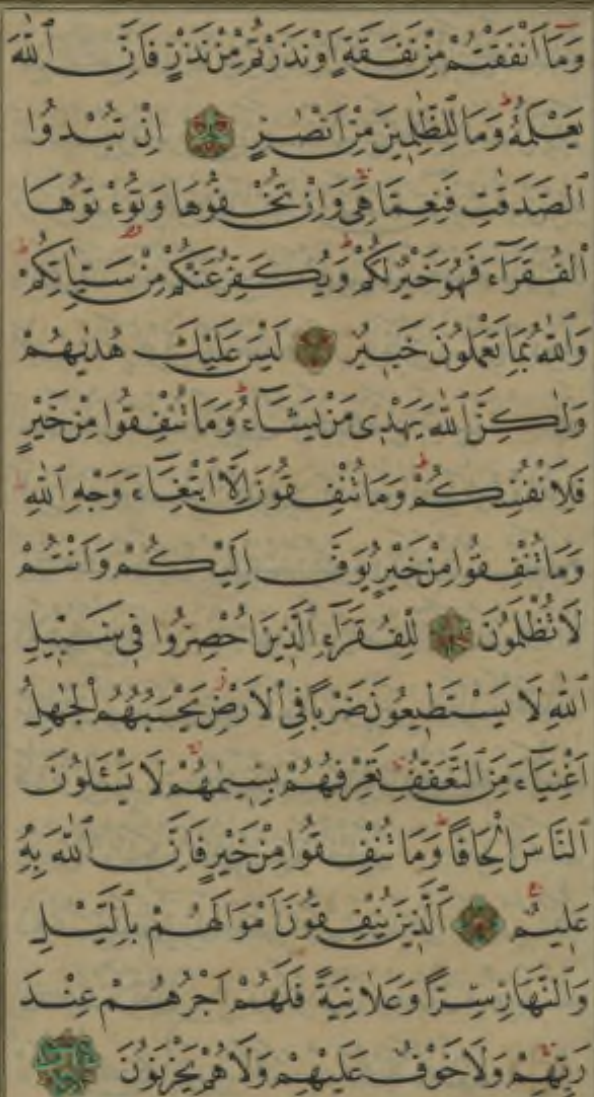 وَمَٓا اَنْفَقْتُمْ مِنْ نَفَقَةٍ اَوْ نَذَرْتُمْ مِنْ نَذْرٍ فَاِنَّ ٱللّٰهَ
يَعْلَمُهُ وَمَا لِلظّٰلِمِينَ مِنْ اَنْصَارٍ اِنْ تُبْدُوا
ٱلصَّدَقٰتِ فَنِعِمَّا هِىَ وَاِنْ تُخْفُوهَا وَتُؤْتُوهَا
ٱلْفُقَرَٓاءَ فَهُوَ خَيْرٌ لَكُمْ وَيُكَفِّرُ عَنْكُمْ مِنْ سَيِّـَٔاتِكُمْ
وَٱللّٰهُ بِمَا تَعْمَلُونَ خَبِيرٌ لَيْسَ عَلَيْكَ هُدٰيهُمْ
وَلٰكِنَّ ٱللّٰهَ يَهْدِى مَنْ يَشَٓاءُ وَمَا تُنْفِقُوا مِنْ خَيْرٍ
فَلِاَنْفُسِكُمْ وَمَا تُنْفِقُونَ اِلَّا ٱبْتِغَٓاءَ وَجْهِ ٱللّٰهِ
وَمَا تُنْفِقُوا مِنْ خَيْرٍ يُوَفَّ اِلَيْكُمْ وَاَنْتُمْ
لَا تُظْلَمُونَ لِلْفُقَرَٓاءِ ٱلَّذِينَ اُحْصِرُوا فِى سَبِيلِ
ٱللّٰهِ لَا يَسْتَطِيعُونَ ضَرْبًا فِى ٱلْاَرْضِ يَحْسَبُهُمُ ٱلْجَاهِلُ
اَغْنِيَٓاءَ مِنَ ٱلتَّعَفُّفِ تَعْرِفُهُمْ بِسِيمٰهُمْ لَا يَسْـَٔلُونَ
ٱلنَّاسَ اِلْحَافًا وَمَا تُنْفِقُوا مِنْ خَيْرٍ فَاِنَّ ٱللّٰهَ بِهِ
عَلِيمٌ ٱلَّذِينَ يُنْفِقُونَ اَمْوَالَهُمْ بِٱلَّيْلِ
وَٱلنَّهَارِ سِرًّا وَعَلَانِيَةً فَلَهُمْ اَجْرُهُمْ عِنْدَ
رَبِّهِمْ وَلَا خَوْفٌ عَلَيْهِمْ وَلَا هُمْ يَحْزَنُونَ